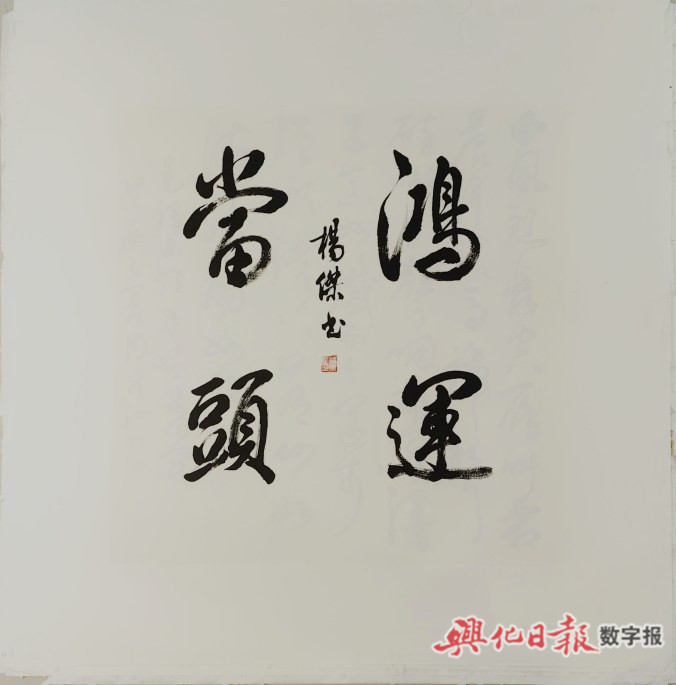 鴻運
當頭
楊傑书
興化日報 数字报